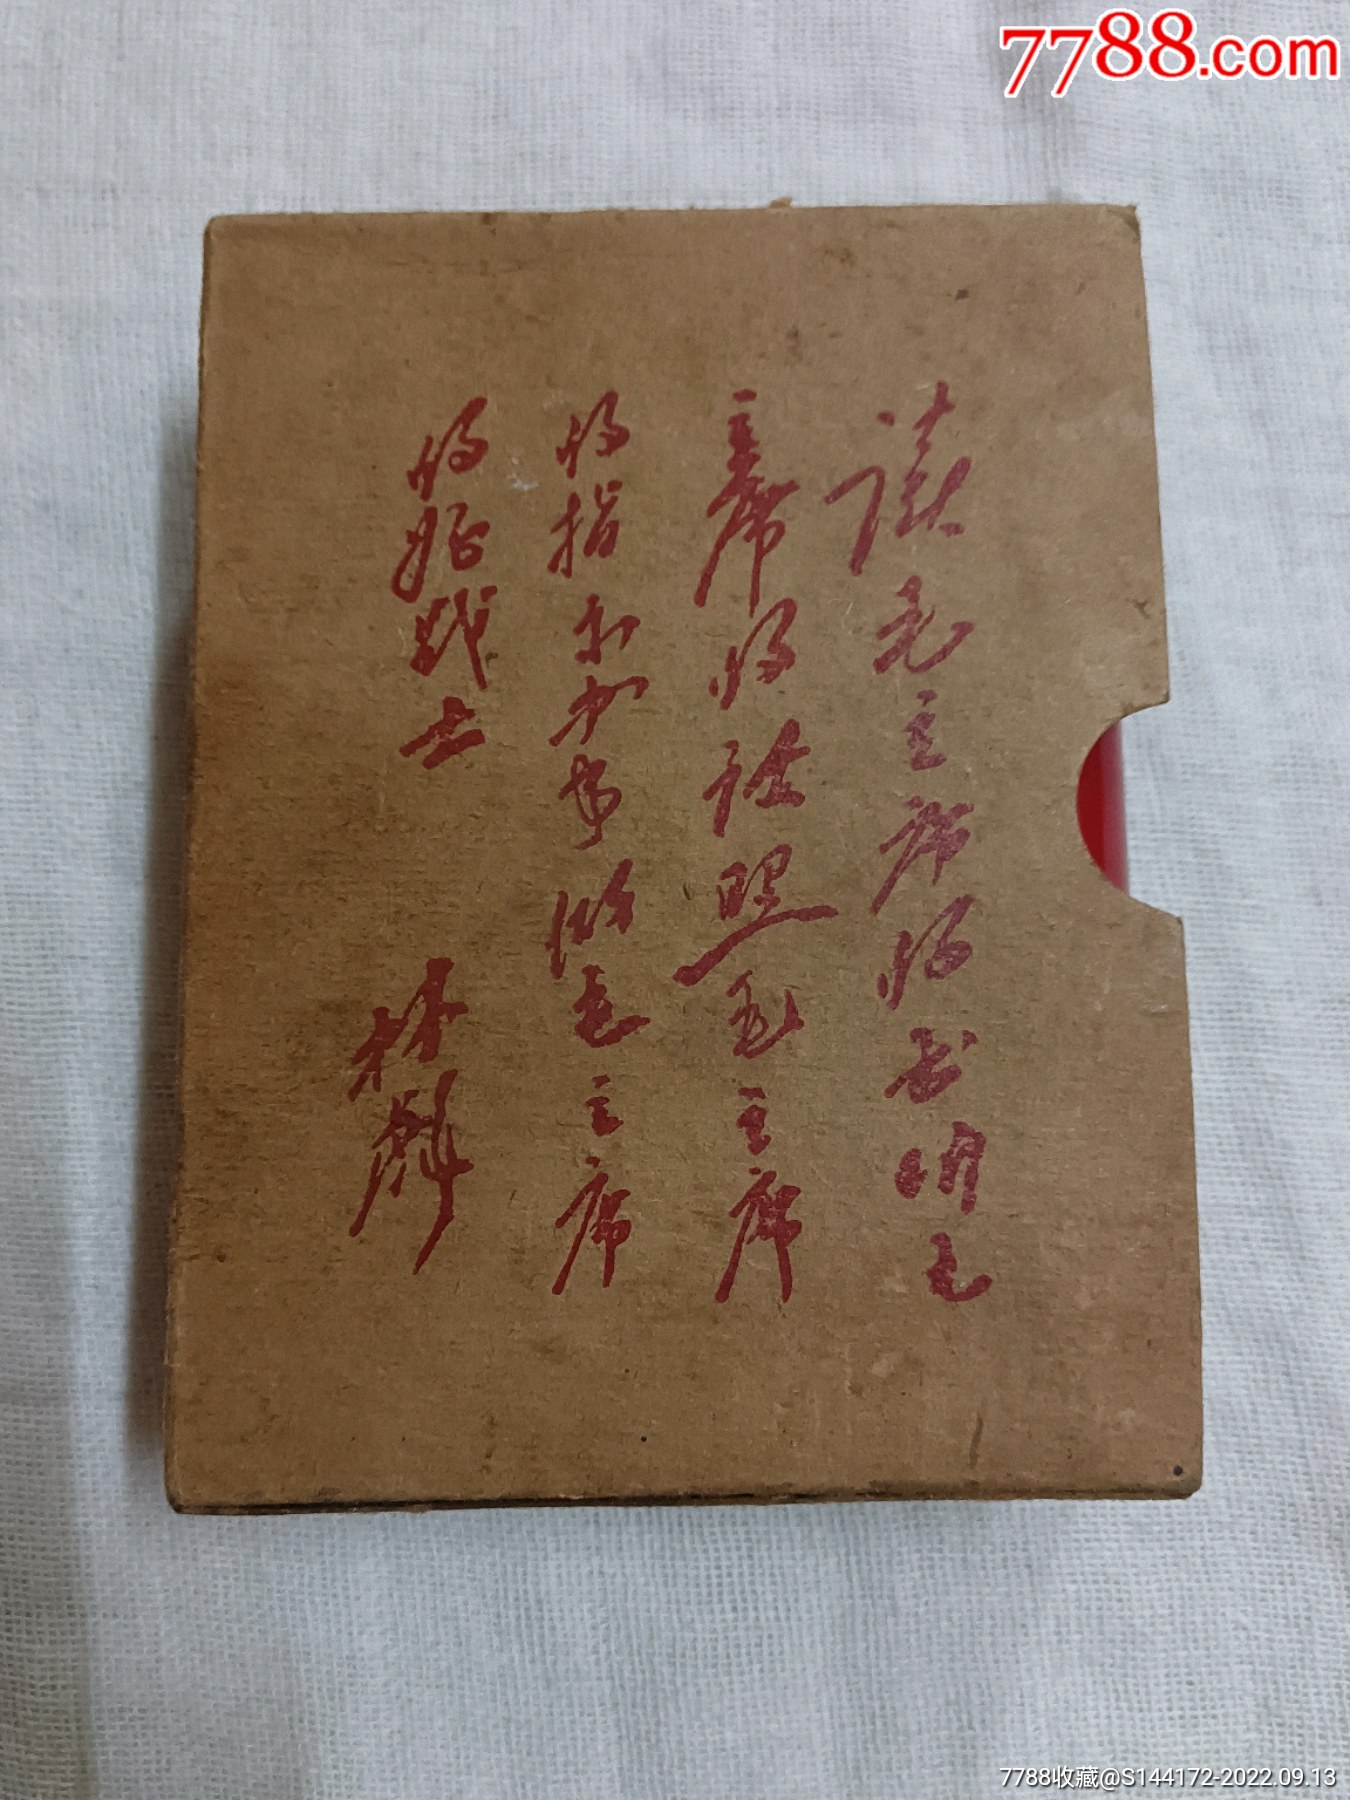 7788.com
读毛主席的书听毛
主席的话照毛主席
的指示办事做毛主席
的好战士
林彪
7788收藏@S144172-2022.09.13